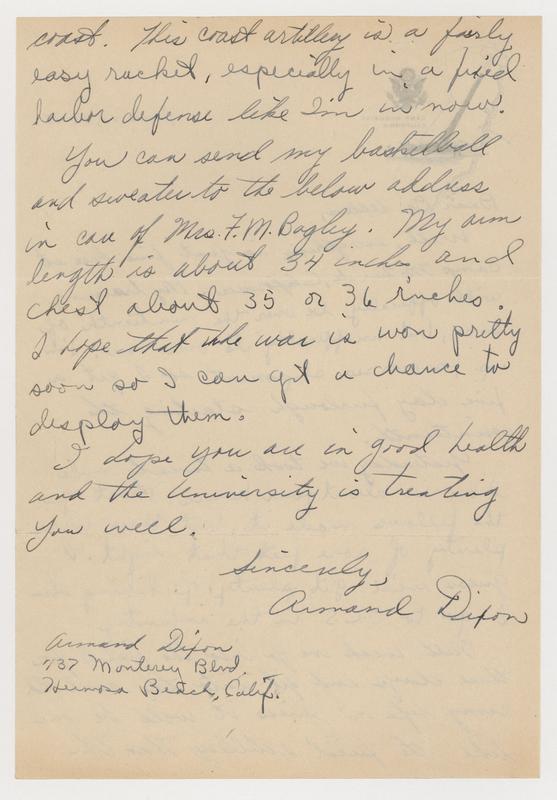 coast. This coast artillery is a fairly
easy racket, especially in a fixed
harbor defense like I'm in now.
You can send my basketball
and sweater to the below address
in care of Mrs. F. M. Bagley. My arm
length is about 34 inches and
chest about 35 or 36 inches.
I hope that the war is won pretty
soon so I can get a chance to
display them.
I hope you are in good health
and the University is treating
you well.
Sincerely,
Armand Dixon
Armand Dixon
737 Monterey Blvd.
Hermosa Beach, Calif.